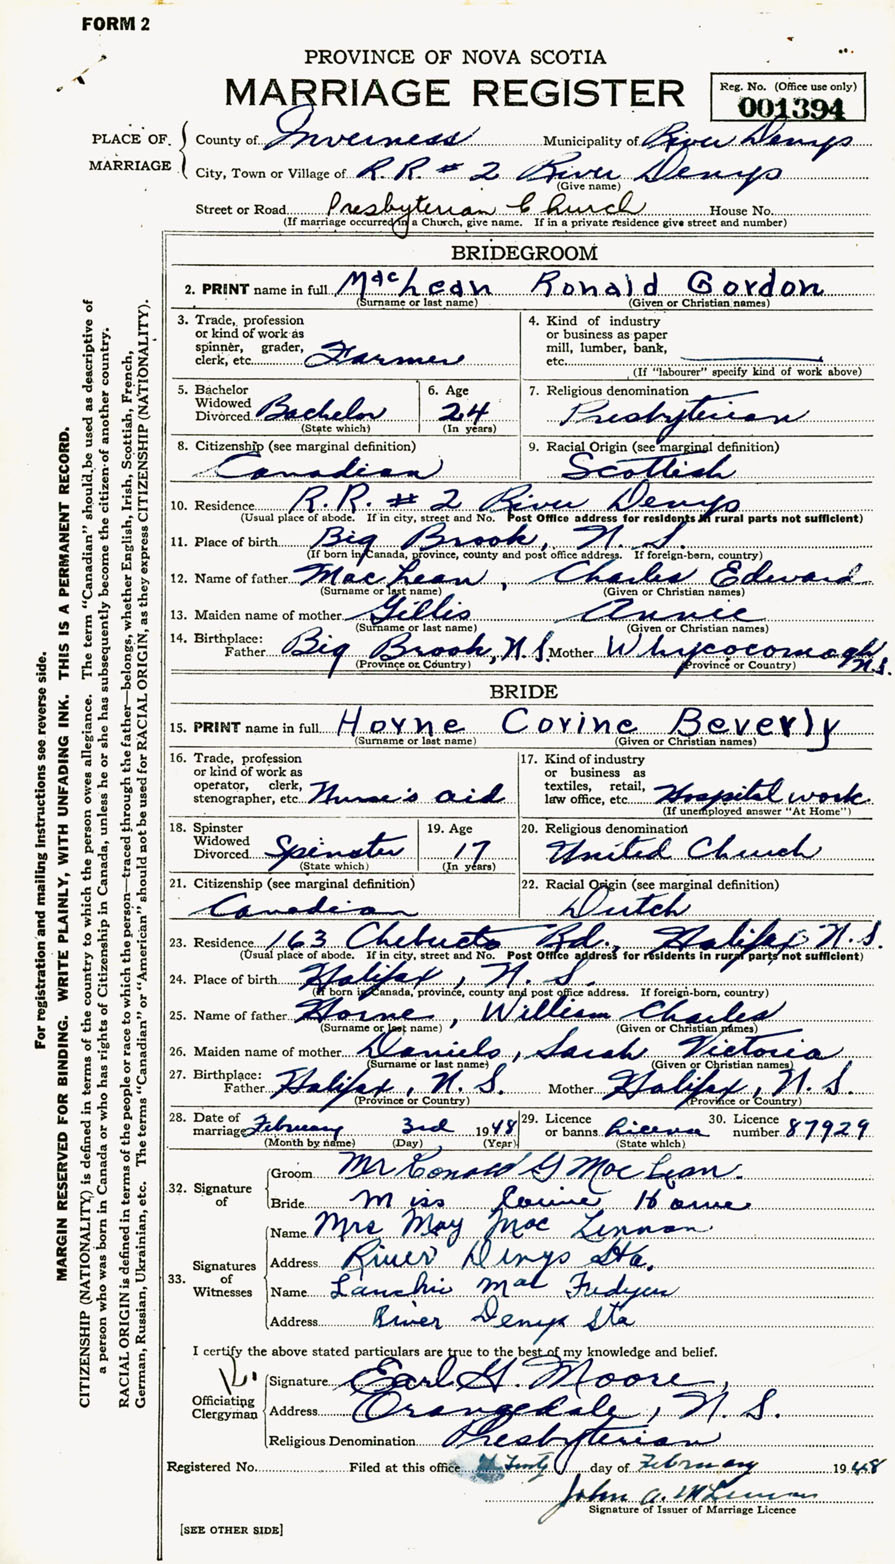 FORM 2
PROVINCE OF NOVA SCOTIA
MARRIAGE REGISTER
Reg. No. (Office use only)
001394
PLACE OF MARRIAGE
County of Inverness Municipality of River Denys
City, Town or Village of R.R. # 2 River Denys
(Give name)
Street or Road Presbyterian Church House No.
(If marriage occurred in a Church, give name. If in a private residence give street and number)
BRIDEGROOM
2. PRINT name in full MacLean Ronald Gordon
(Surname or last name) (Given or Christian names)
3. Trade, profession or kind of work as spinner, grader, clerk, etc. Farmer
4. Kind of industry or business as paper mill, lumber, bank, etc.
(If "labourer" specify kind of work above)
5. Bachelor Widowed Divorced Bachelor
(State which)
6. Age 24
(In years)
7. Religious denomination Presbyterian
8. Citizenship (see marginal definition) Canadian
9. Racial Origin (see marginal definition) Scottish
10. Residence R.R. # 2 River Denys
(Usual place of abode. If in city, street and No. Post Office address for residents in rural parts not sufficient)
11. Place of birth Big Brook, N.S.
(If born in Canada, province, county and post office address. If foreign-born, country)
12. Name of father MacLean, Charles Edward
(Surname or last name) (Given or Christian names)
13. Maiden name of mother Gillis Annie
(Surname or last name) (Given or Christian names)
14. Birthplace: Father Big Brook, N.S. Mother Whycocomagh N.S.
(Province or Country) (Province or Country)
BRIDE
15. PRINT name in full Horne Corine Beverly
(Surname or last name) (Given or Christian names)
16. Trade, profession or kind of work as operator, clerk, stenographer, etc. Nurse's aid
17. Kind of industry or business as textiles, retail, law office, etc. Hospital work
(If unemployed answer "At Home")
18. Spinster Widowed Divorced Spinster
(State which)
19. Age 17
(In years)
20. Religious denomination United Church
21. Citizenship (see marginal definition) Canadian
22. Racial Origin (see marginal definition) Dutch
23. Residence 163 Chebucto Rd., Halifax N.S.
(Usual place of abode. If in city, street and No. Post Office address for residents in rural parts not sufficient)
24. Place of birth Halifax, N.S.
(If born in Canada, province, county and post office address. If foreign-born, country)
25. Name of father Horne, William Charles
(Surname or last name) (Given or Christian names)
26. Maiden name of mother Daniels, Sarah Victoria
(Surname or last name) (Given or Christian names)
27. Birthplace: Father Halifax, N.S. Mother Halifax, N.S.
(Province or Country) (Province or Country)
28. Date of marriage February 3rd 1948
(Month by name) (Day) (Year)
29. Licence or banns License
(State which)
30. Licence number 87929
32. Signature of
Groom Mr Ronald G MacLean.
Bride Miss Corine Horne
33. Signatures of Witnesses
Name Mrs May MacLennan
Address River Denys Sta.
Name Lauchie Mac
Address River Denys Sta
I certify the above stated particulars are true to the best of my knowledge and belief.
Officiating Clergyman
Signature Earl G. Moore,
Address Orangedale, N.S.
Religious Denomination Presbyterian
Registered No. Filed at this office day of February 1948
John A.
Signature of Issuer of Marriage Licence
[SEE OTHER SIDE]
For registration and mailing instructions see reverse side.
MARGIN RESERVED FOR BINDING. WRITE PLAINLY, WITH UNFADING INK. THIS IS A PERMANENT RECORD.
CITIZENSHIP (NATIONALITY) is defined in terms of the country to which the person owes allegiance. The term "Canadian" should be used as descriptive of
a person who was born in Canada or who has rights of Citizenship in Canada, unless he or she has subsequently become the citizen of another country.
RACIAL ORIGIN is defined in terms of the people or race to which the person—traced through the father—belongs, whether English, Irish, Scottish, French,
German, Russian, Ukrainian, etc. The terms "Canadian" or "American" should not be used for RACIAL ORIGIN, as they express CITIZENSHIP (NATIONALITY).